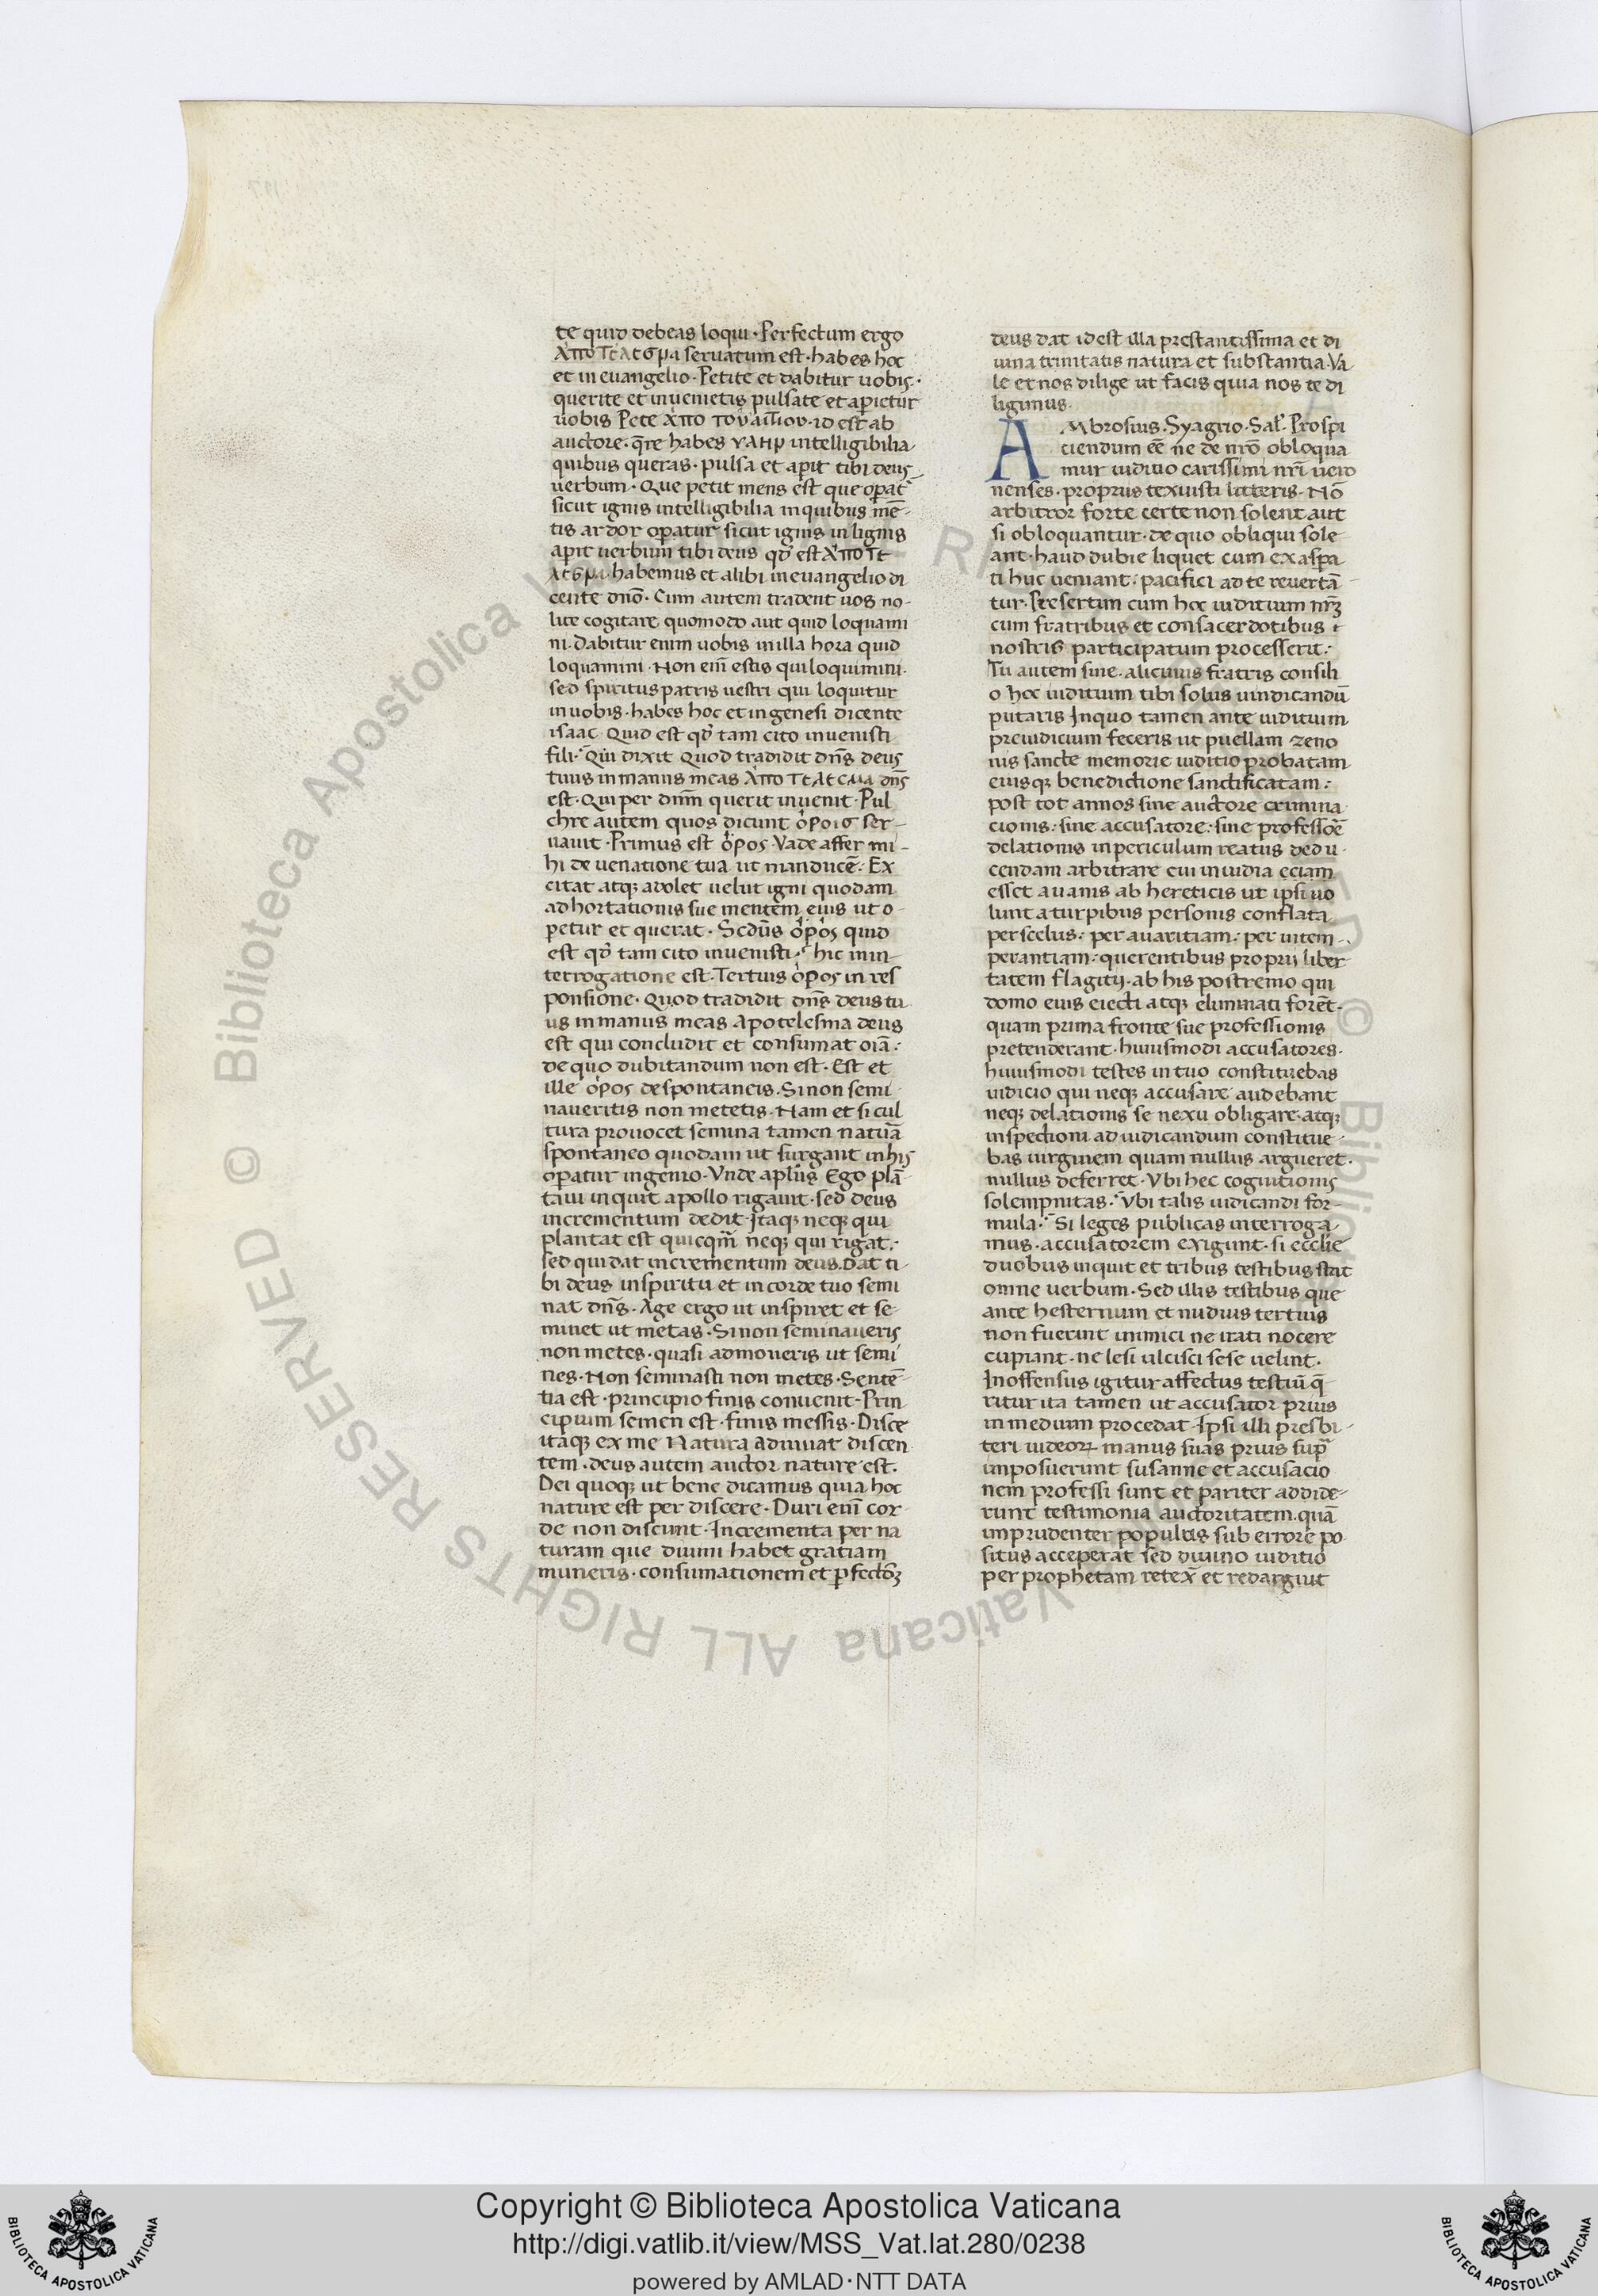 te quid debeas loqui · Perfectum ergo
ἀποτελεσμα seruatum est · habes hoc
et in euangelio · Petite et dabitur uobis ·
querite et inuenietis pulsate et aperietur
uobis Pete ἀπο του αιτιου · id est ab
auctore · qre habes υλημ intelligibilia ·
quibus queras · pulsa et apit tibi deus
uerbum · Que petit mens est que opat᷑
sicut ignis intelligibilia in quibus mē-
tis ardor opatur sicut ignis in lignis
apit uerbum tibi deus qđ est ἀποτε
λεσμα · habemus et alibi in euangelio di
cente dnō · Cum autem tradent uos no-
lite cogitare quomodo aut quid loquami
ni · dabitur enim uobis in illa hora quid
loquamini · Non eni᷑ estis qui loquimini ·
sed spiritus patris uestri qui loquitur
in uobis · habes hoc et in genesi dicente
isaac Quid est qđ tam cito inuenisti
fili · Qui dixit Quod tradidit dn̄s deus
tuus in manus meas ἀποτελεσμα dn̄s
est · Qui per dnm̄ querit inuenit · Pul
chre autem quos dicunt ὁρους ser-
uauit · Primus est ὁρος · Vade affer mi-
hi de uenatione tua ut manducē · Ex
citat atq; adolet uelut igni quodam
adhortationis sue mentem eius ut o-
petur et querat · Scdus ὁρος quid
est qđ tam cito inuenisti · hic in in-
terrogatione est · Tertius ὁρος in res
ponsione · Quod tradidit dn̄s deus tu
us in manus meas Apotelesma deus
est qui concludit et consumat oiā :
de quo dubitandum non est · Est et
ille ὁρος de spontaneis · Si non semi
naueritis non metetis · Nam et si cul
tura prouocet semina tamen naturā
spontaneo quodam ut surgant in his
opatur ingenio · Vnde aplūs Ego plā-
taui inquit apollo rigauit · sed deus
incrementum dedit · Itaq; neq; qui
plantat est quicqm̄ neq; qui rigat :
sed qui dat incrementum deus · Dat ti-
bi deus in spiritu et in corde tuo semi
nat dn̄s · Age ergo ut inspiret et se
minet ut metas · Si non seminaueris
non metes · quasi admoueris ut semi
nes · Non seminasti non metes · Sentē
tia est · principio finis conuenit · Prin
cipium semen est · finis messis · Disce
itaq; ex me Natura adiuuat discen
tem · deus autem auctor nature est ·
Dei quoq; ut bene dicamus quia hoc
nature est per discere · Duri eni᷑ cor-
de non discunt · Incrementa per na
turam que diuini habet gratiam
muneris · consumationem et pfectōꝫ
deus dat id est illa prestantissima et di
uina trinitatis natura et substantia · Va
le et nos dilige ut facis quia nos te di
ligimus ·
AMbrosius · Syagrio · Sal᷑ · Prospi
ciendum eē ne de nrō obloqua
mur iuditio carissimi nrī uero
nenses · propriis texuisti litteris · Nō
arbitror forte certe non solent aut
si obloquantur · de quo obliqui sole
ant · haud dubie liquet cum exaspa
ti huc ueniant : pacifici ad te reuertā
tur · Presertim cum hoc iuditium nrꝫ
cum fratribus et consacerdotibus
nostris participatum processerit :
Tu autem sine alicuius fratris consili
o hoc iuditium tibi solus uindicandū
putaris In quo tamen ante iuditium
preiudicium feceris ut puellam zeno
nis sancte memorie iuditio probatam
eiusq; benedictione sanctificatam :
post tot annos sine auctore crimina
cionis : sine accusatore : sine professōe
delationis in periculum reatus dedu
cendam arbitrare cui inuidia eciam
esset a uanis ab hereticis ut ipsi uo
lunt a turpibus personis conflata
per scelus : per auaritiam : per intem-
perantiam : querentibus proprii liber
tatem flagitij · ab his postremo qui
domo eius eiecti atq; eliminati forēt ·
quam prima fronte sue professionis
pretenderant · huiusmodi accusatores ·
huiusmodi testes in tuo constituebas
iudicio qui neq; accusare audebant
neq; delationis se nexu obligare · atq;
inspectioni adiudicandum constitue
bas uirginem quam nullus argueret ·
nullus deferret · Vbi hec cognitionis
solempnitas · Vbi talis iudicandi for-
mula · Si leges publicas interroga
mus · accusatorem exigunt · si ecclie
duobus inquit et tribus testibus stat
omne uerbum · Sed illis testibus que
ante hesternum et nudius tertius
non fuerint inimici ne irati nocere
cupiant · ne lesi ulcisci sese uelint ·
Inoffensus igitur affectus testiū q̄
ritur ita tamen ut accusator prius
in medium procedat · Ipsi illi presbi-
teri iudeoꝝ manus suas prius supra
imposuerunt susanne et accusacio
nem professi sunt et pariter addide-
runt testimonia auctoritatem · quā
imprudenter populus sub errore po
situs acceperat sed diuino iuditio
per prophetam retex̄ et redarguit
Copyright © Biblioteca Apostolica Vaticana
http://digi.vatlib.it/view/MSS_Vat.lat.280/0238
powered by AMLAD·NTT DATA
BIBLIOTECA APOSTOLICA VATICANA
BIBLIOTECA APOSTOLICA VATICANA
© Biblioteca Apostolica Vaticana ALL RIGHTS RESERVED
© Biblioteca Apostolica Vaticana ALL RIGHTS RESERVED